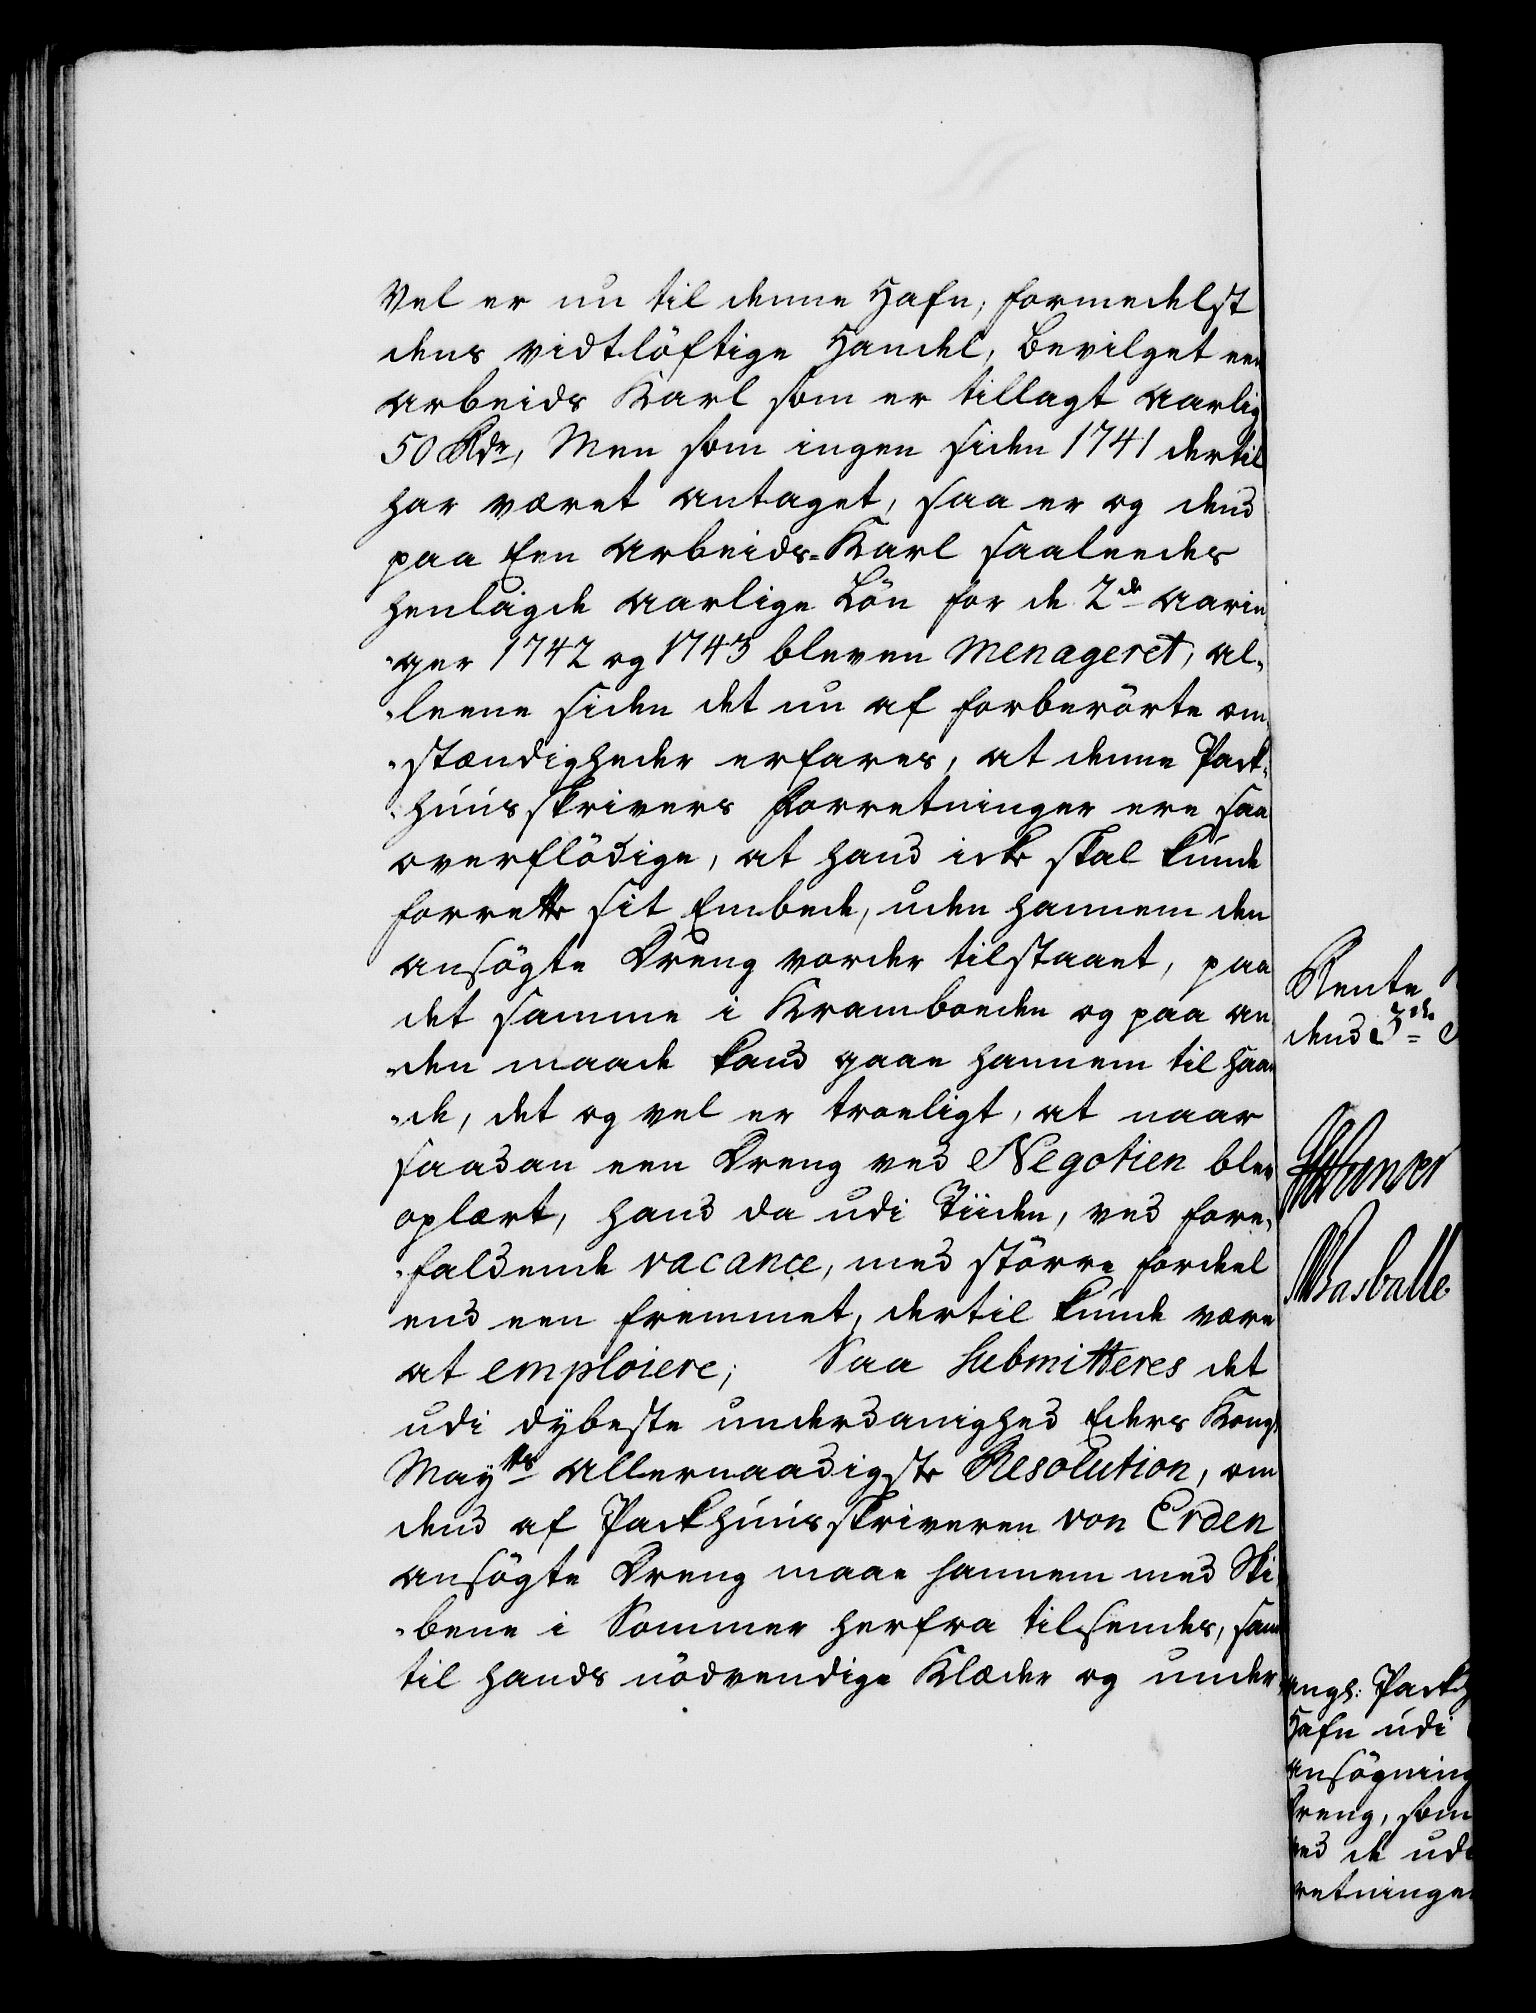 Vel er nu til denne Hafn, formedelst
dens vidtløftige Handel, bevilget een
Arbeids Karl som er tillagt aarlig
50 Rdr, Men som ingen siden 1741 dertil
har været antaget, saa er og dend
paa Een Arbeids-Karl saaleedes
henlagde aarlige Løn for de 2de Aarin-
-ger 1742 og 1743 bleven menageret, al-
-leene siden det nu af forberørte om-
-stændigheder erfares, at denne Pack-
-huusskrivers Forretninger ere saa
overflødige, at hand icke skal kunde
forrette sit Embede, uden hannem den
ansøgte Dreng vorder tilstaaet, paa
det samme i Kramboeden og paa an-
-den maade kand gaae hannem til haan-
-de, det og vel er troeligt, at naar
saadan een Dreng ved Negotien blev
oplært, hand da udi Tiiden, ved fore-
-faldende vacance, med større fordeel
end een fremmet, dertil kunde være
at emploiere; Saa submitteres det
udi dybeste underdanighed Eders Kongl.
Mayts allernaadigste Resolution, om
dend af Packhuusskriveren von Erden
ansøgte Dreng maae hannem med Ski-
-bene i Sommer herfra tilsendes, samt
til hands nødvendige Klæder og under-
Rente
dend 3de
Wasballe
angl: Packh
Hafn udi
ansøgning
Dreng, som
ved de udi
retninger